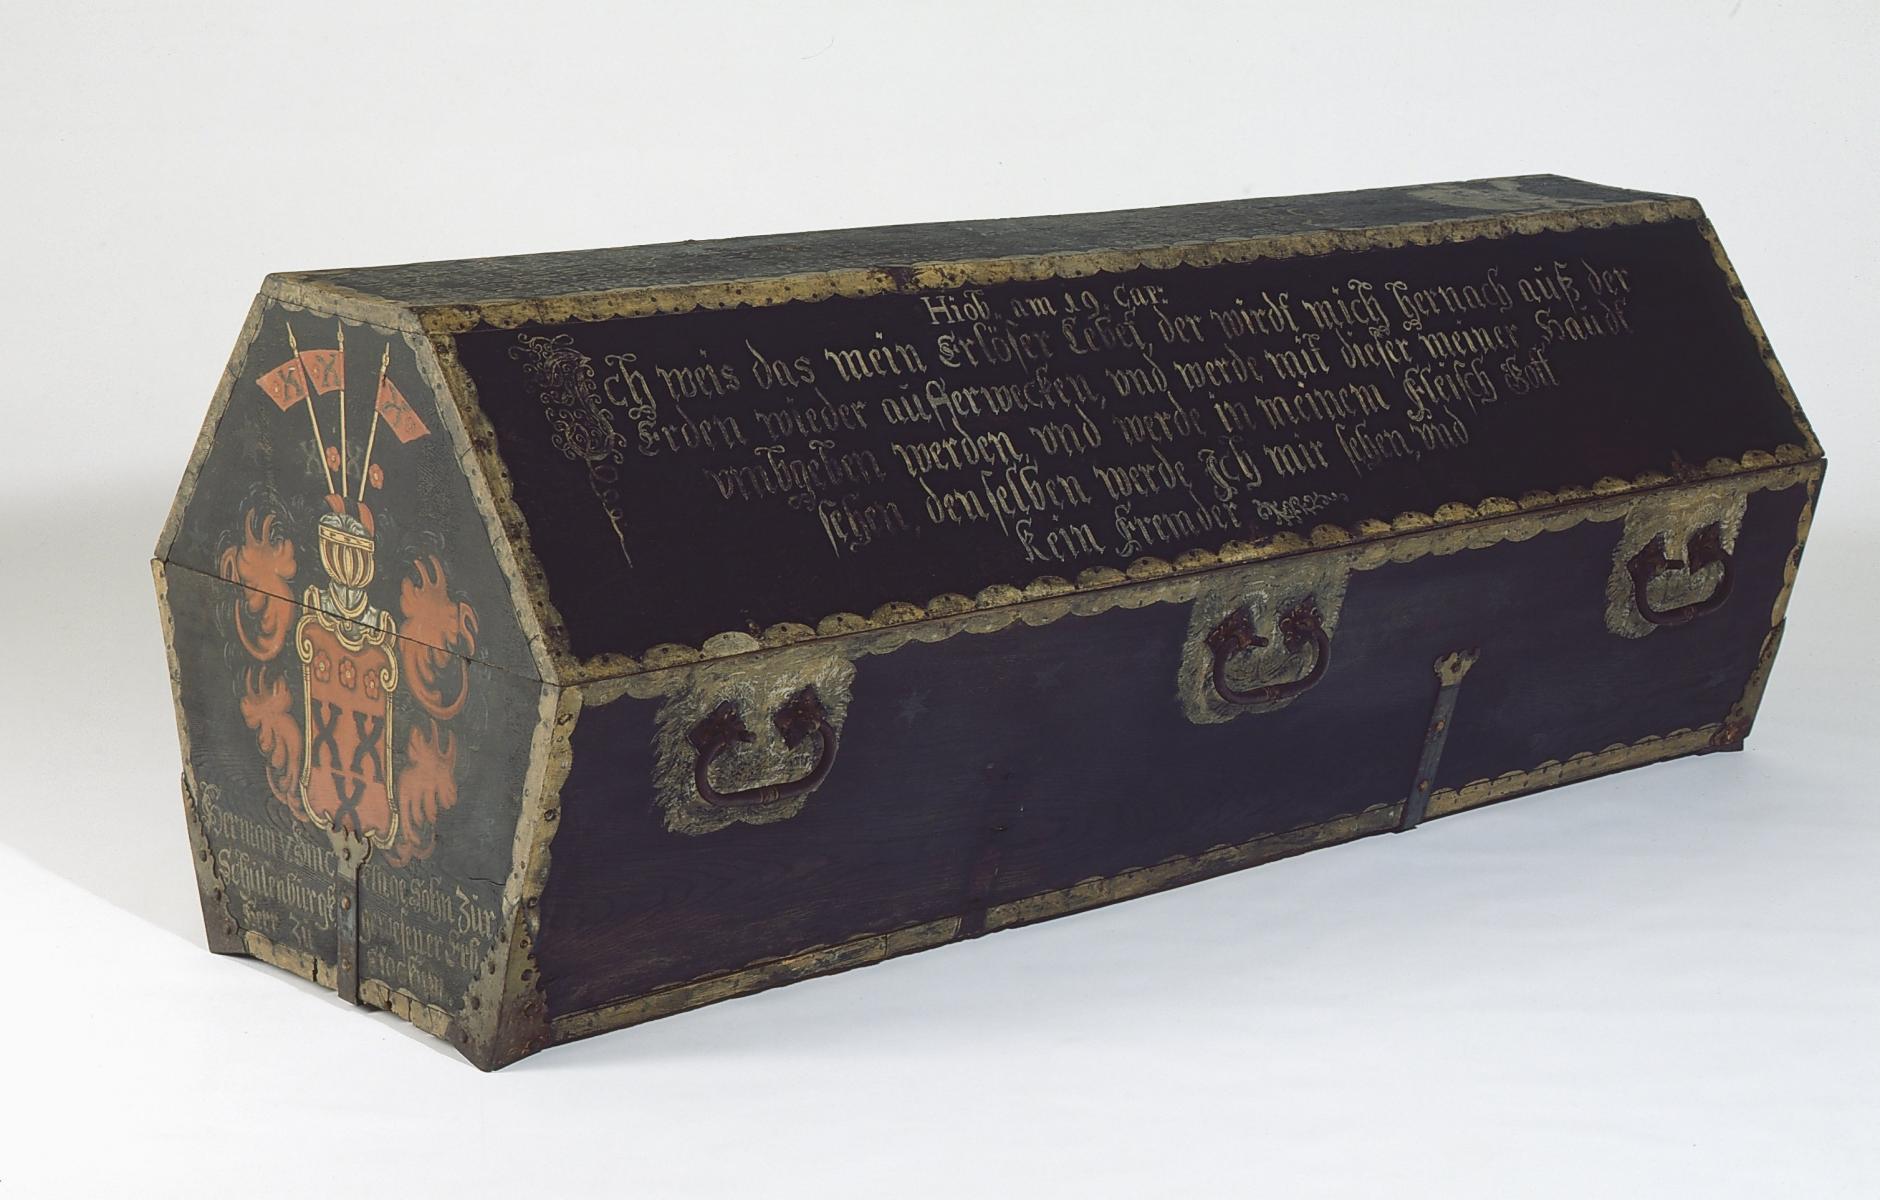 Hiob. am 19. Cap:
Ich weis das mein Erlöser Lebet, der wirdt mich hernach auß der
Erden wieder aufferwecken, vnd werde mit dieser meiner Haudt
vmbgeben werden, vnd werde in meinem Fleisch Gott
sehen, denselben werde Ich mir sehen, vnd
Kein Frembder
Herman Sohn Zur
Schulenburgk gewesener Erb
Herr zu
X X X
X X
X